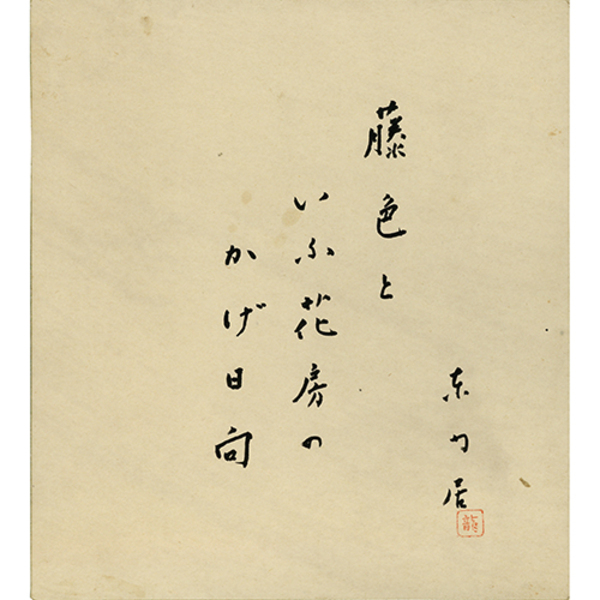 藤色と
いふ花房の
かげ日向
東門居
龍